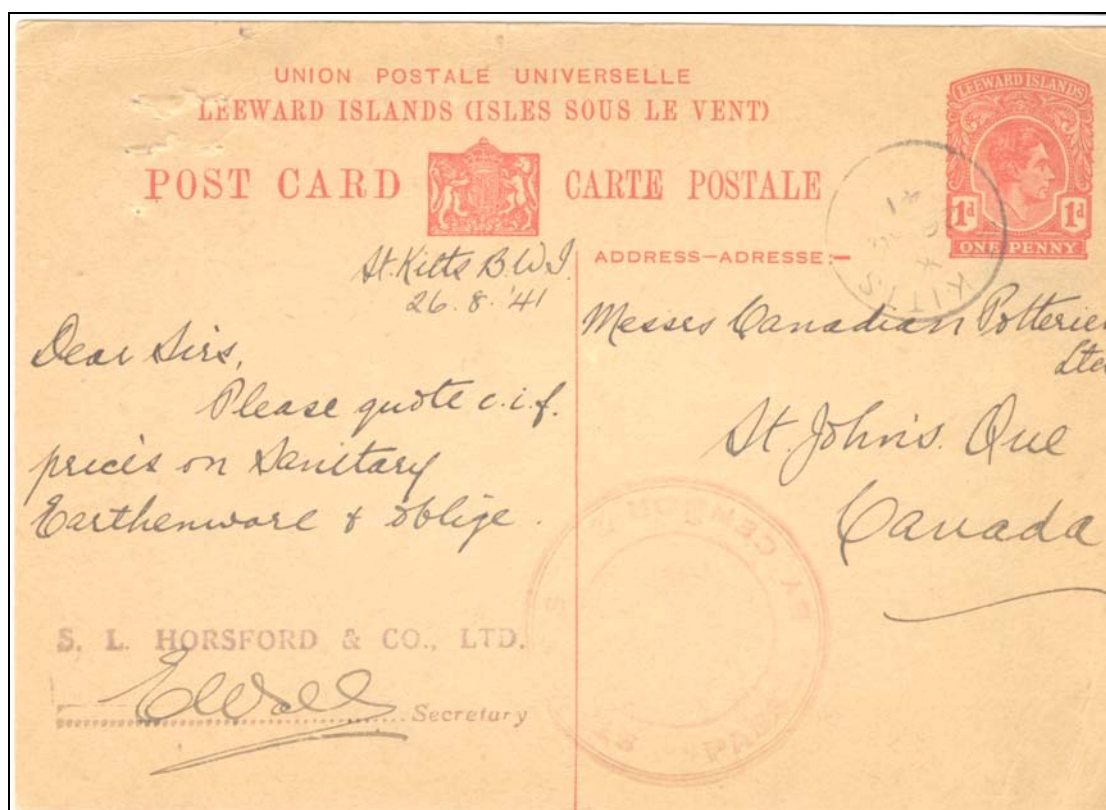 UNION POSTALE UNIVERSELLE
LEEWARD ISLANDS (ISLES SOUS LE VENT)
POST CARD CARTE POSTALE
LEEWARD ISLANDS
1d 1d
ONE PENNY
ADDRESS—ADRESSE:—
KITTS
St. Kitts B.W.I.
26. 8. '41
Dear Sirs,
Please quote c.i.f.
prices on Sanitary
Earthenware & oblige.
S. L. HORSFORD & CO., LTD.
Secretary
Messes Canadian Potterie
Lte
St. John's. Que
Canada
BY CENSOR